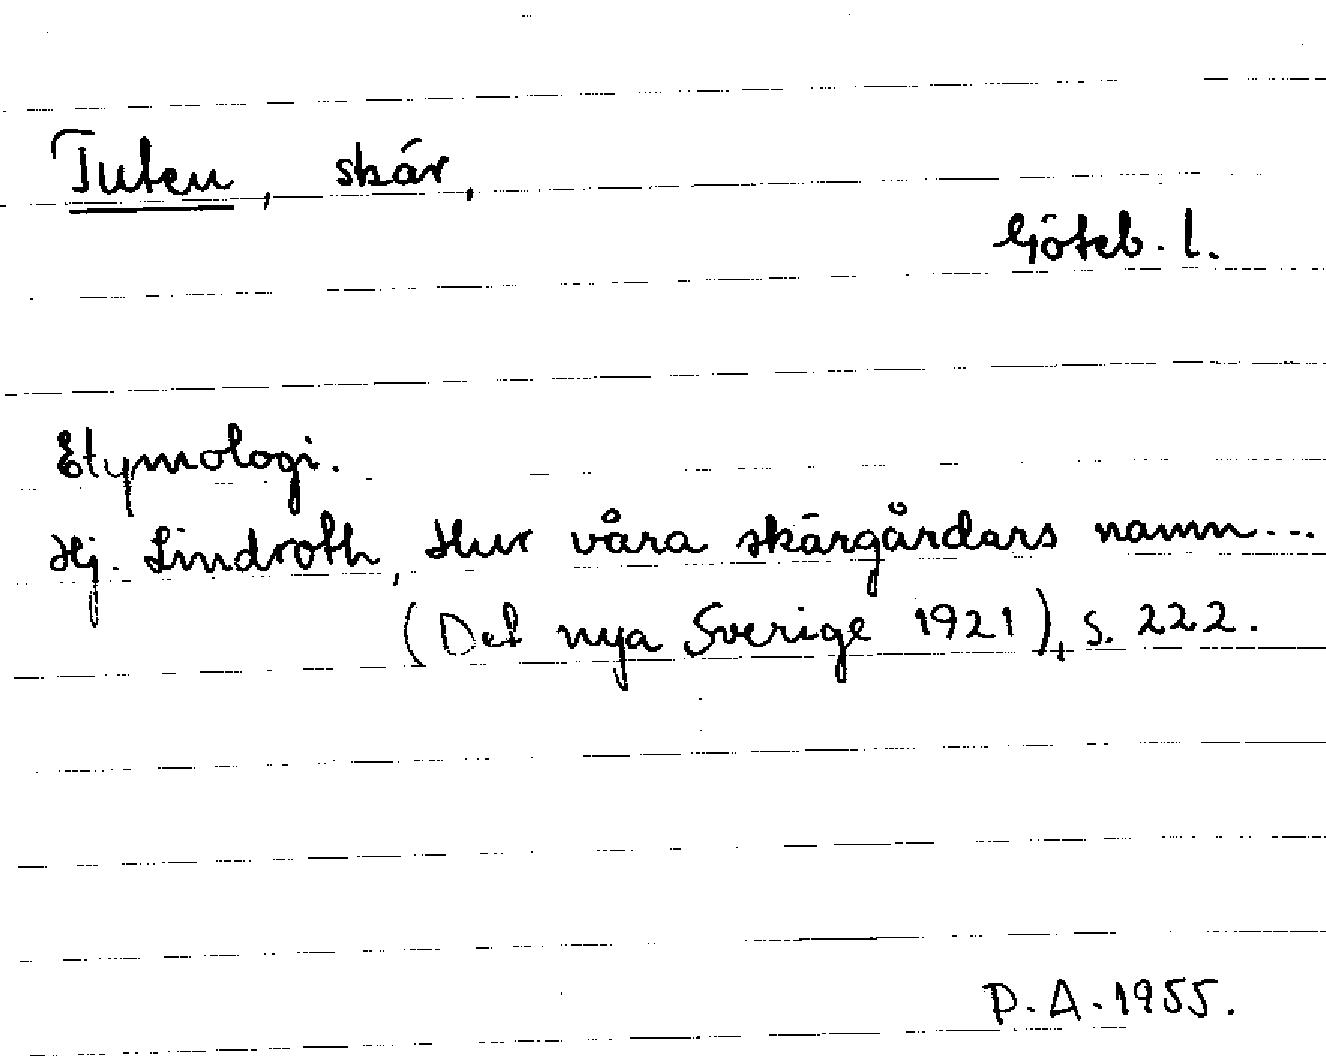 Tuten, skär,
Göteb. l.
Etymologi.
Hj. Lindroth, Hur våra skärgårdars namn...
(Det nya Sverige 1921), s. 222.
P. A. 1955.